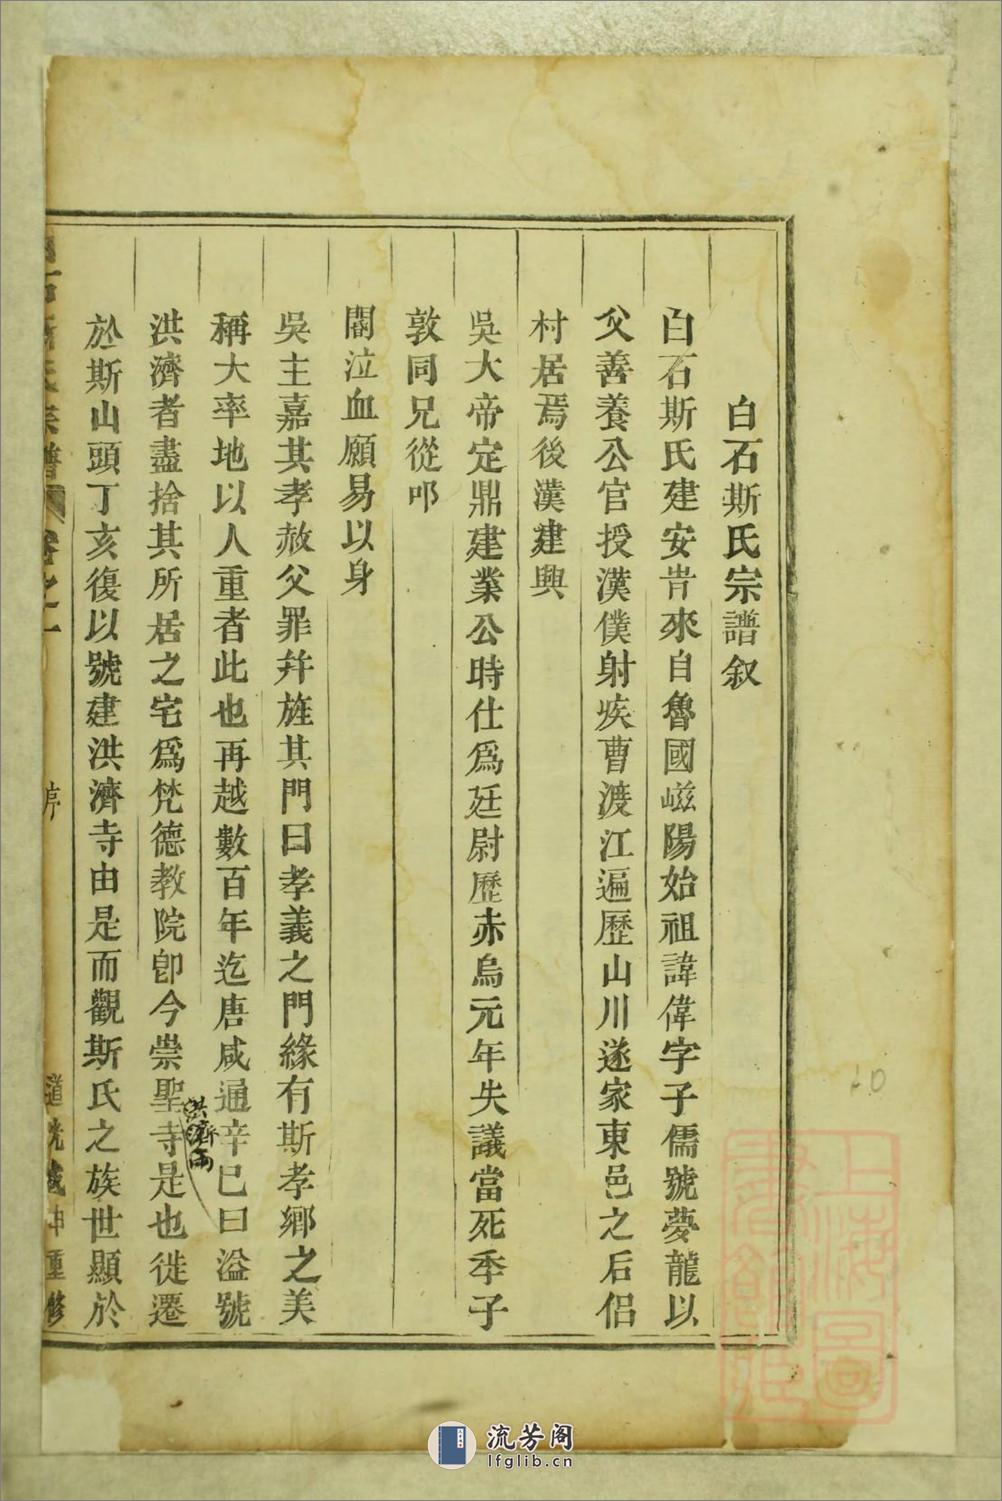 白石斯氏宗譜叙
白石斯氏建安昔來自魯國嵫陽始祖諱偉字子儒號夢龍以
父善養公官授漢僕射疾曹渡江遍歷山川遂家東邑之后侶
村居焉後漢建興
吳大帝定鼎建業公時仕爲廷尉歷赤烏元年失議當死季子
敦同兄從叩
閽泣血願易以身
吳主嘉其孝赦父罪幷旌其門曰孝義之門緣有斯孝鄉之美
稱大率地以人重者此也再越數百年迄唐咸通辛巳曰溢號
洪濟者盡捨其所居之宅爲梵德教院卽今崇聖寺是也徙遷
洪濟
於斯山頭丁亥復以號建洪濟寺由是而觀斯氏之族世顯於
石斯氏宗譜 卷之一 序 道光戊申重修
上海圖書館藏
流芳阁
lfglib.cn